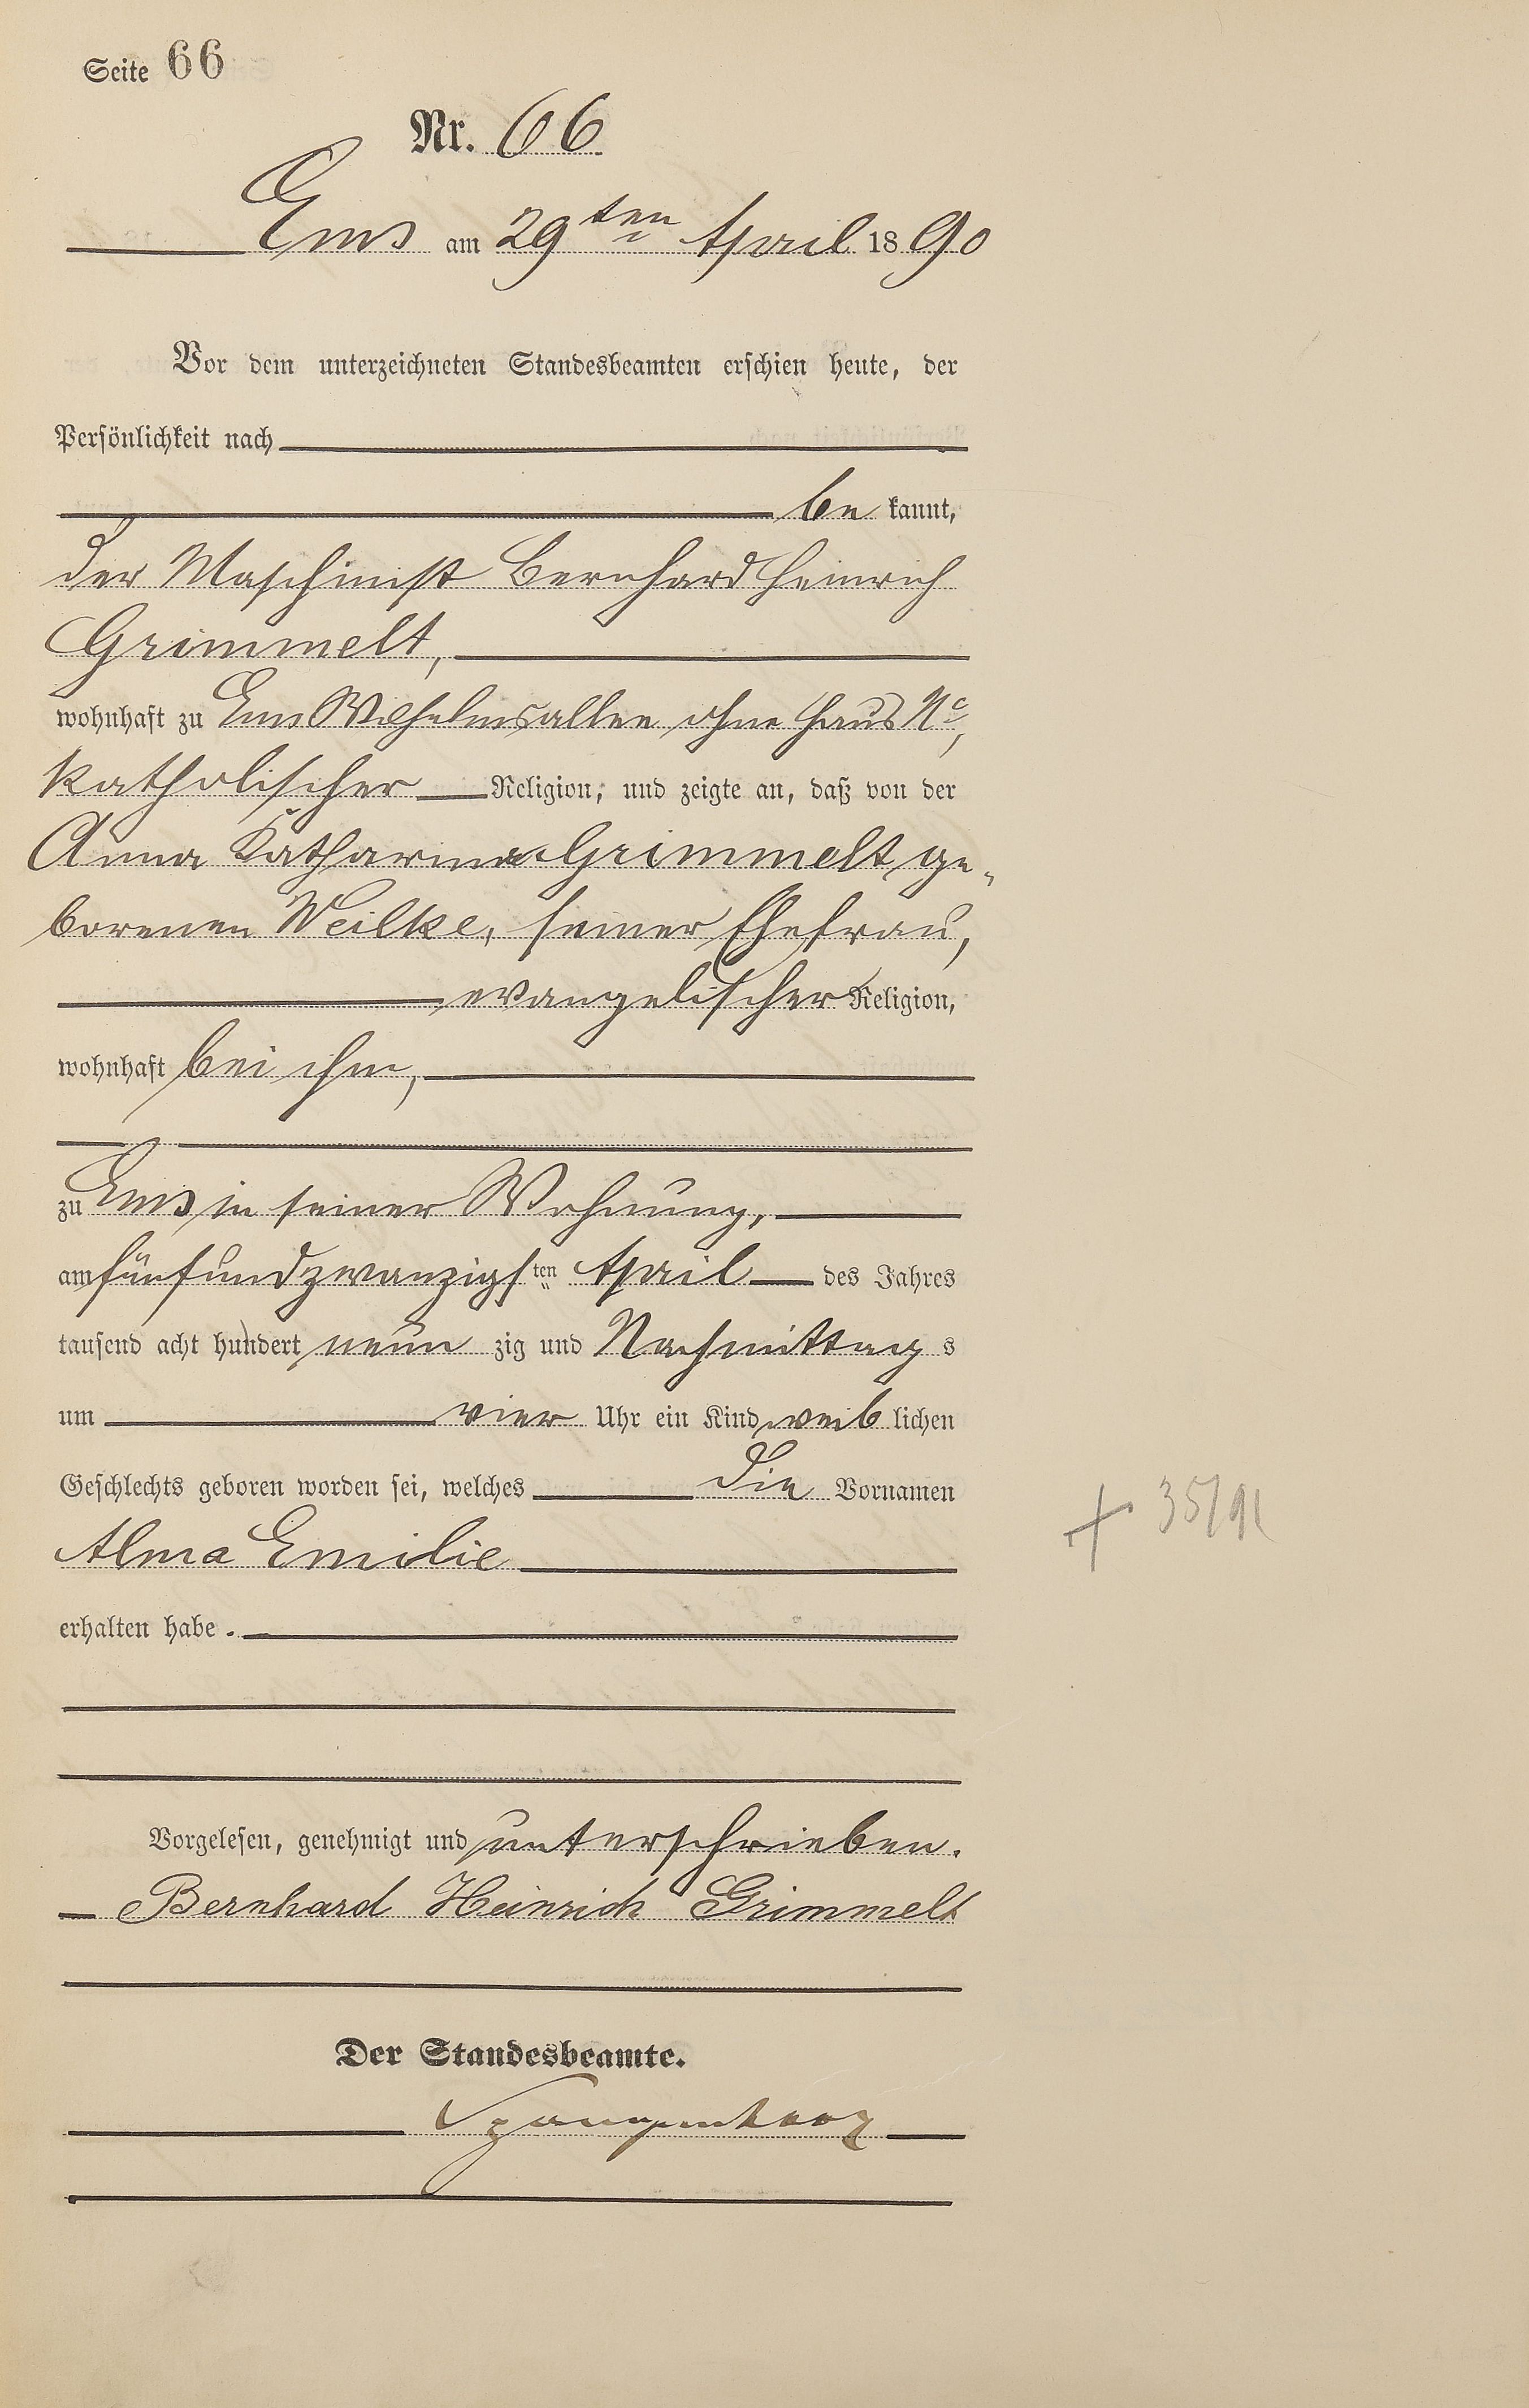 Seite 66
Nr. 66
Ems am 29ten April 1890
Vor dem unterzeichneten Standesbeamten erschien heute, der
Persönlichkeit nach
be kannt,
der Maschinist Bernhard Heinrich
Grimmelt,
wohnhaft zu Ems Wilhelmsallee ohne Haus No,
katholischer Religion, und zeigte an, daß von der
Anna Katharina Grimmelt, ge-
borenen Weilke, seiner Ehefrau,
evangelischer Religion,
wohnhaft bei ihm,
zu Ems in seiner Wohnung,
am fünfundzwanzigsten April des Jahres
tausend acht hundert neun zig und Nachmittag s
um vier Uhr ein Kind weib lichen
Geschlechts geboren worden sei, welches die Vornamen
Alma Emilie
+ 35/91
erhalten habe.
Vorgelesen, genehmigt und unterschrieben.
Bernhard Heinrich Grimmelt
Der Standesbeamte.